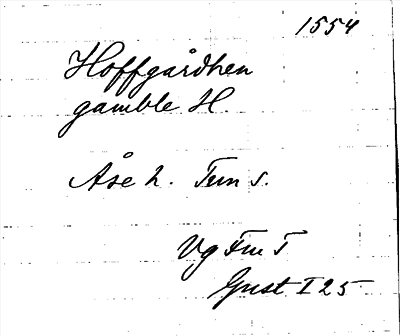 1554
Hoffgårdhen
gamble H.
Åse h. Tun s.
Vg Fru T
Gust I 25